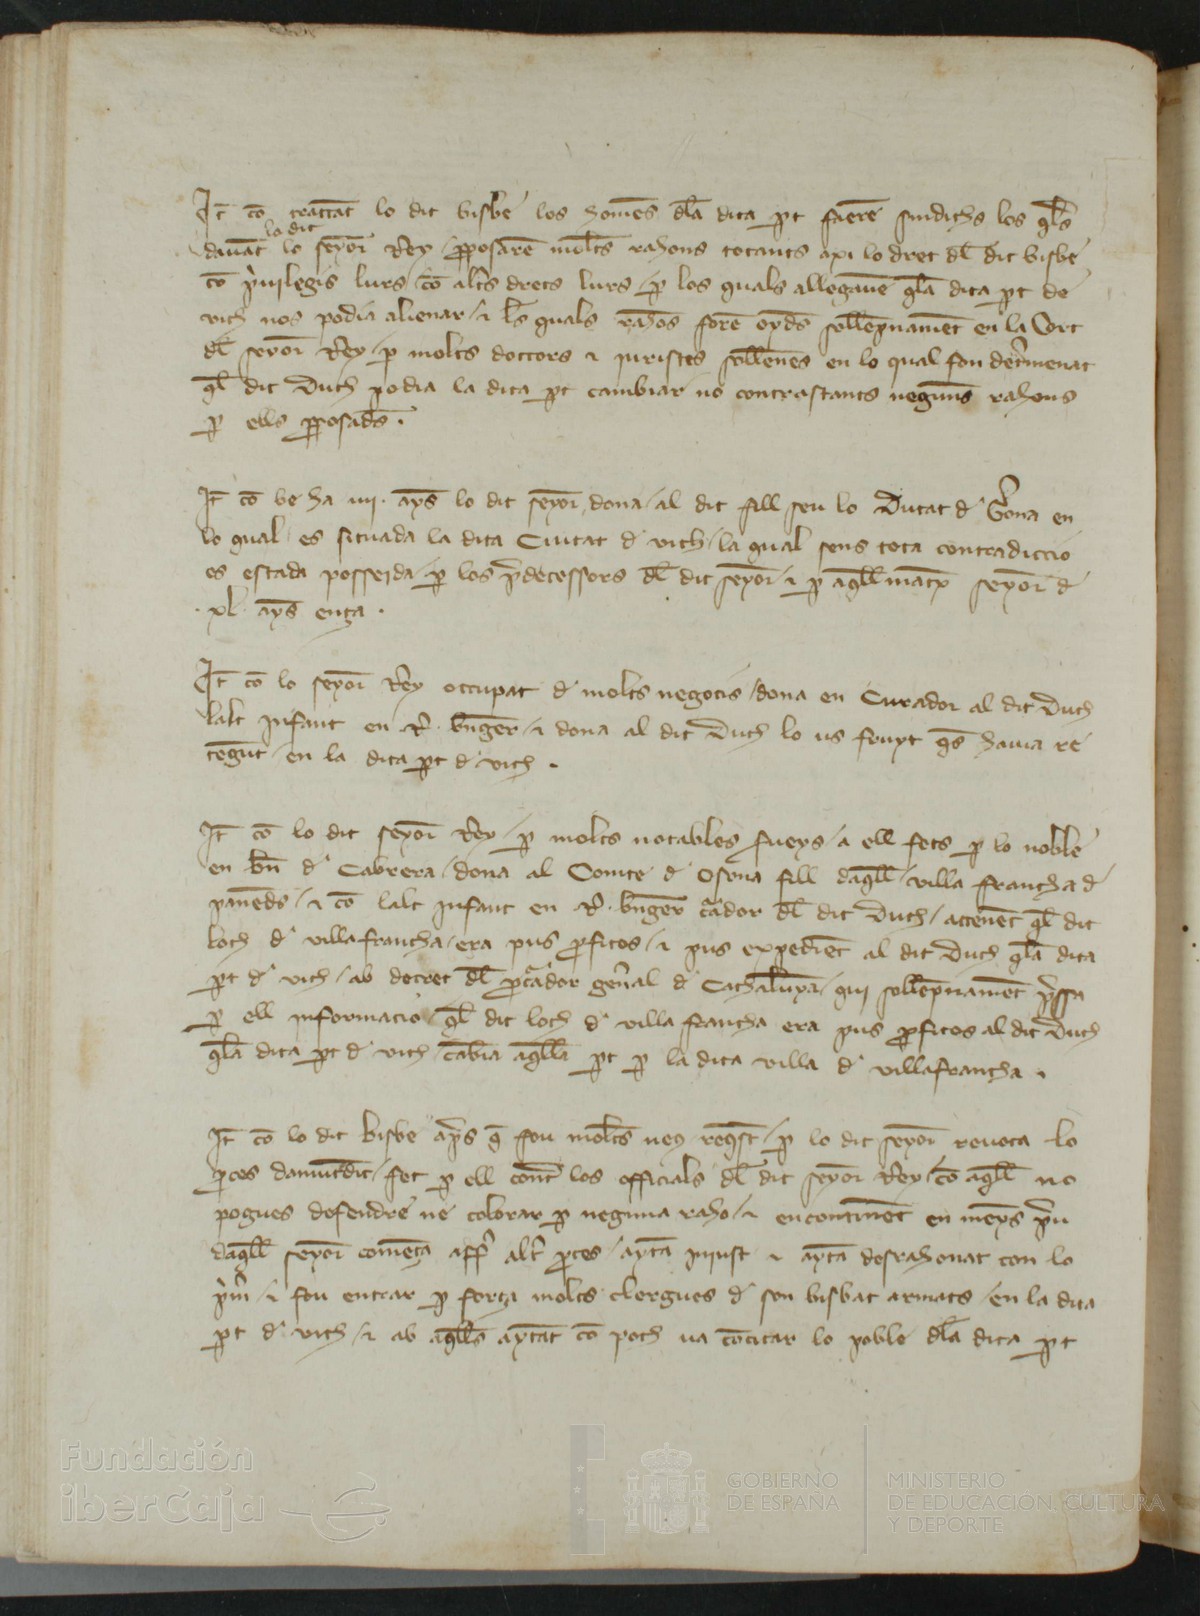 It co tractat lo dit bisbe los homes dla dita pt faere sindichs los qls
lo dit
dauat lo seyor Rey / pposare molts rahons tocants axi lo dret dl dit bisbe
co priuilegis lurs / co alts drets lurs / p los quals allegaue qla dita pt de
vich nos podia alienar / ⁊ ls quals rahos fore oyds sollepnamet en la Cort
dl seyor Rey / p molts doctors ⁊ juristes sollenes en lo qual fon detmenat
ql dit Duch podia la dita pt cambiar no contrastants neguns rahons
p ells pposads .
It co be ha iiij . ays lo dit seyor dona / al dit fill seu lo Ducat d Gona en
lo qual es situada la dita Ciutat d vich / la qual sens tota contradiccio
es estada posseida / p los pdecessors dl dit seyor ⁊ p aqll matex seyor d
. xl . ays ença .
It co lo seyor Rey occupat d molts negocis / dona en Curador al dit Duch
lalt infant en R . bnger / ⁊ dona al dit Duch lo us fruyt qs hauia re
tegut / en la dita pt d vich .
It co lo dit seyor Rey / p molts notables fueys / a ell fets p lo noble
en bn d Cabrera / dona al Comte d Osona fill daqll / villa francha d
paneds / ⁊ co lalt infant en R . bnger cador dl dit Duch / attenet ql dit
loch d villafrancha / era pus pfitos / ⁊ pus expediet al dit Duch qla dita
pt d vich / ab decret dl pcador genal d Cathaluya / qui sollepnamet pssa
p ell informacio / ql dit loch d villa francha era pus pfitos al dit Duch
qla dita pt d vich / cabia aqlla pt p la dita villa d villafrancha .
It co lo dit bisbe aps q fou molts ueg reqst / p lo dit seyor reuoca lo
pces damutdit / fet p ell cont los officials dl dit seyor Rey / co aqll no
pogues defendre ne colorar p neguna raho / ⁊ encontinet en meyspu
daqll seyor começa affer alt pces / ayta injust ⁊ ayta desrahonat con lo
pim / ⁊ fou entrar p força molts clergues d son bisbat armats / en la dita
pt d vich / ⁊ ab aqlls aytat co poch ua cocitar lo poble dla dita pt
Fundación
iberCaja
GOBIERNO
DE ESPAÑA
MINISTERIO
DE EDUCACIÓN, CULTURA
Y DEPORTE